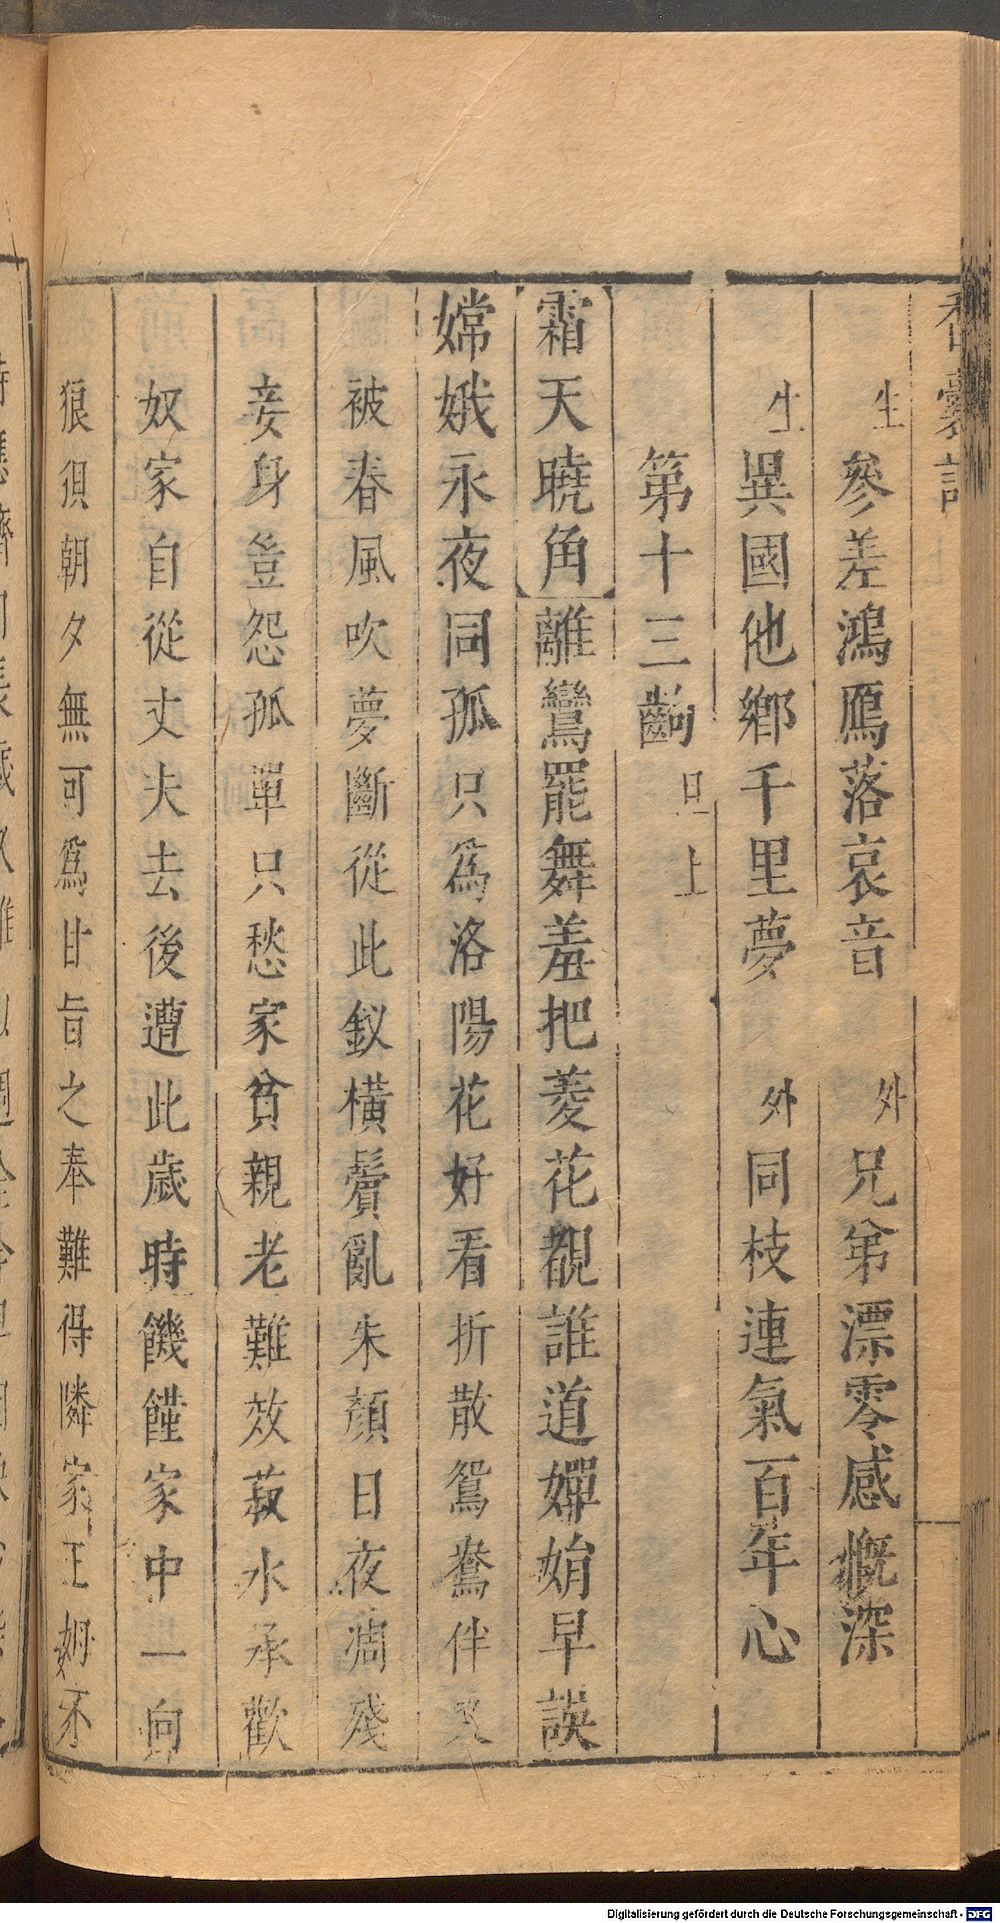 香囊記
生 參差鴻鴈落哀音 外 兄弟漂零感慨深
生 異國他鄉千里夢 外 同枝連氣百年心
第十三齣 旦上
霜天曉角 離鸞罷舞羞把菱花覩誰道嬋娟早誤
嫦娥永夜同孤只為洛陽花好看折散鴛鴦伴又
被春風吹夢斷從此釵橫鬢亂朱顏日夜凋殘
妾身豈怨孤單只愁家貧親老難效菽水承歡
奴家自從丈夫去後遭此歲時饑饉家中一向
狼狽朝夕無可為甘旨之奉難得隣家王姆不
Digitalisierung gefördert durch die Deutsche Forschungsgemeinschaft - DFG